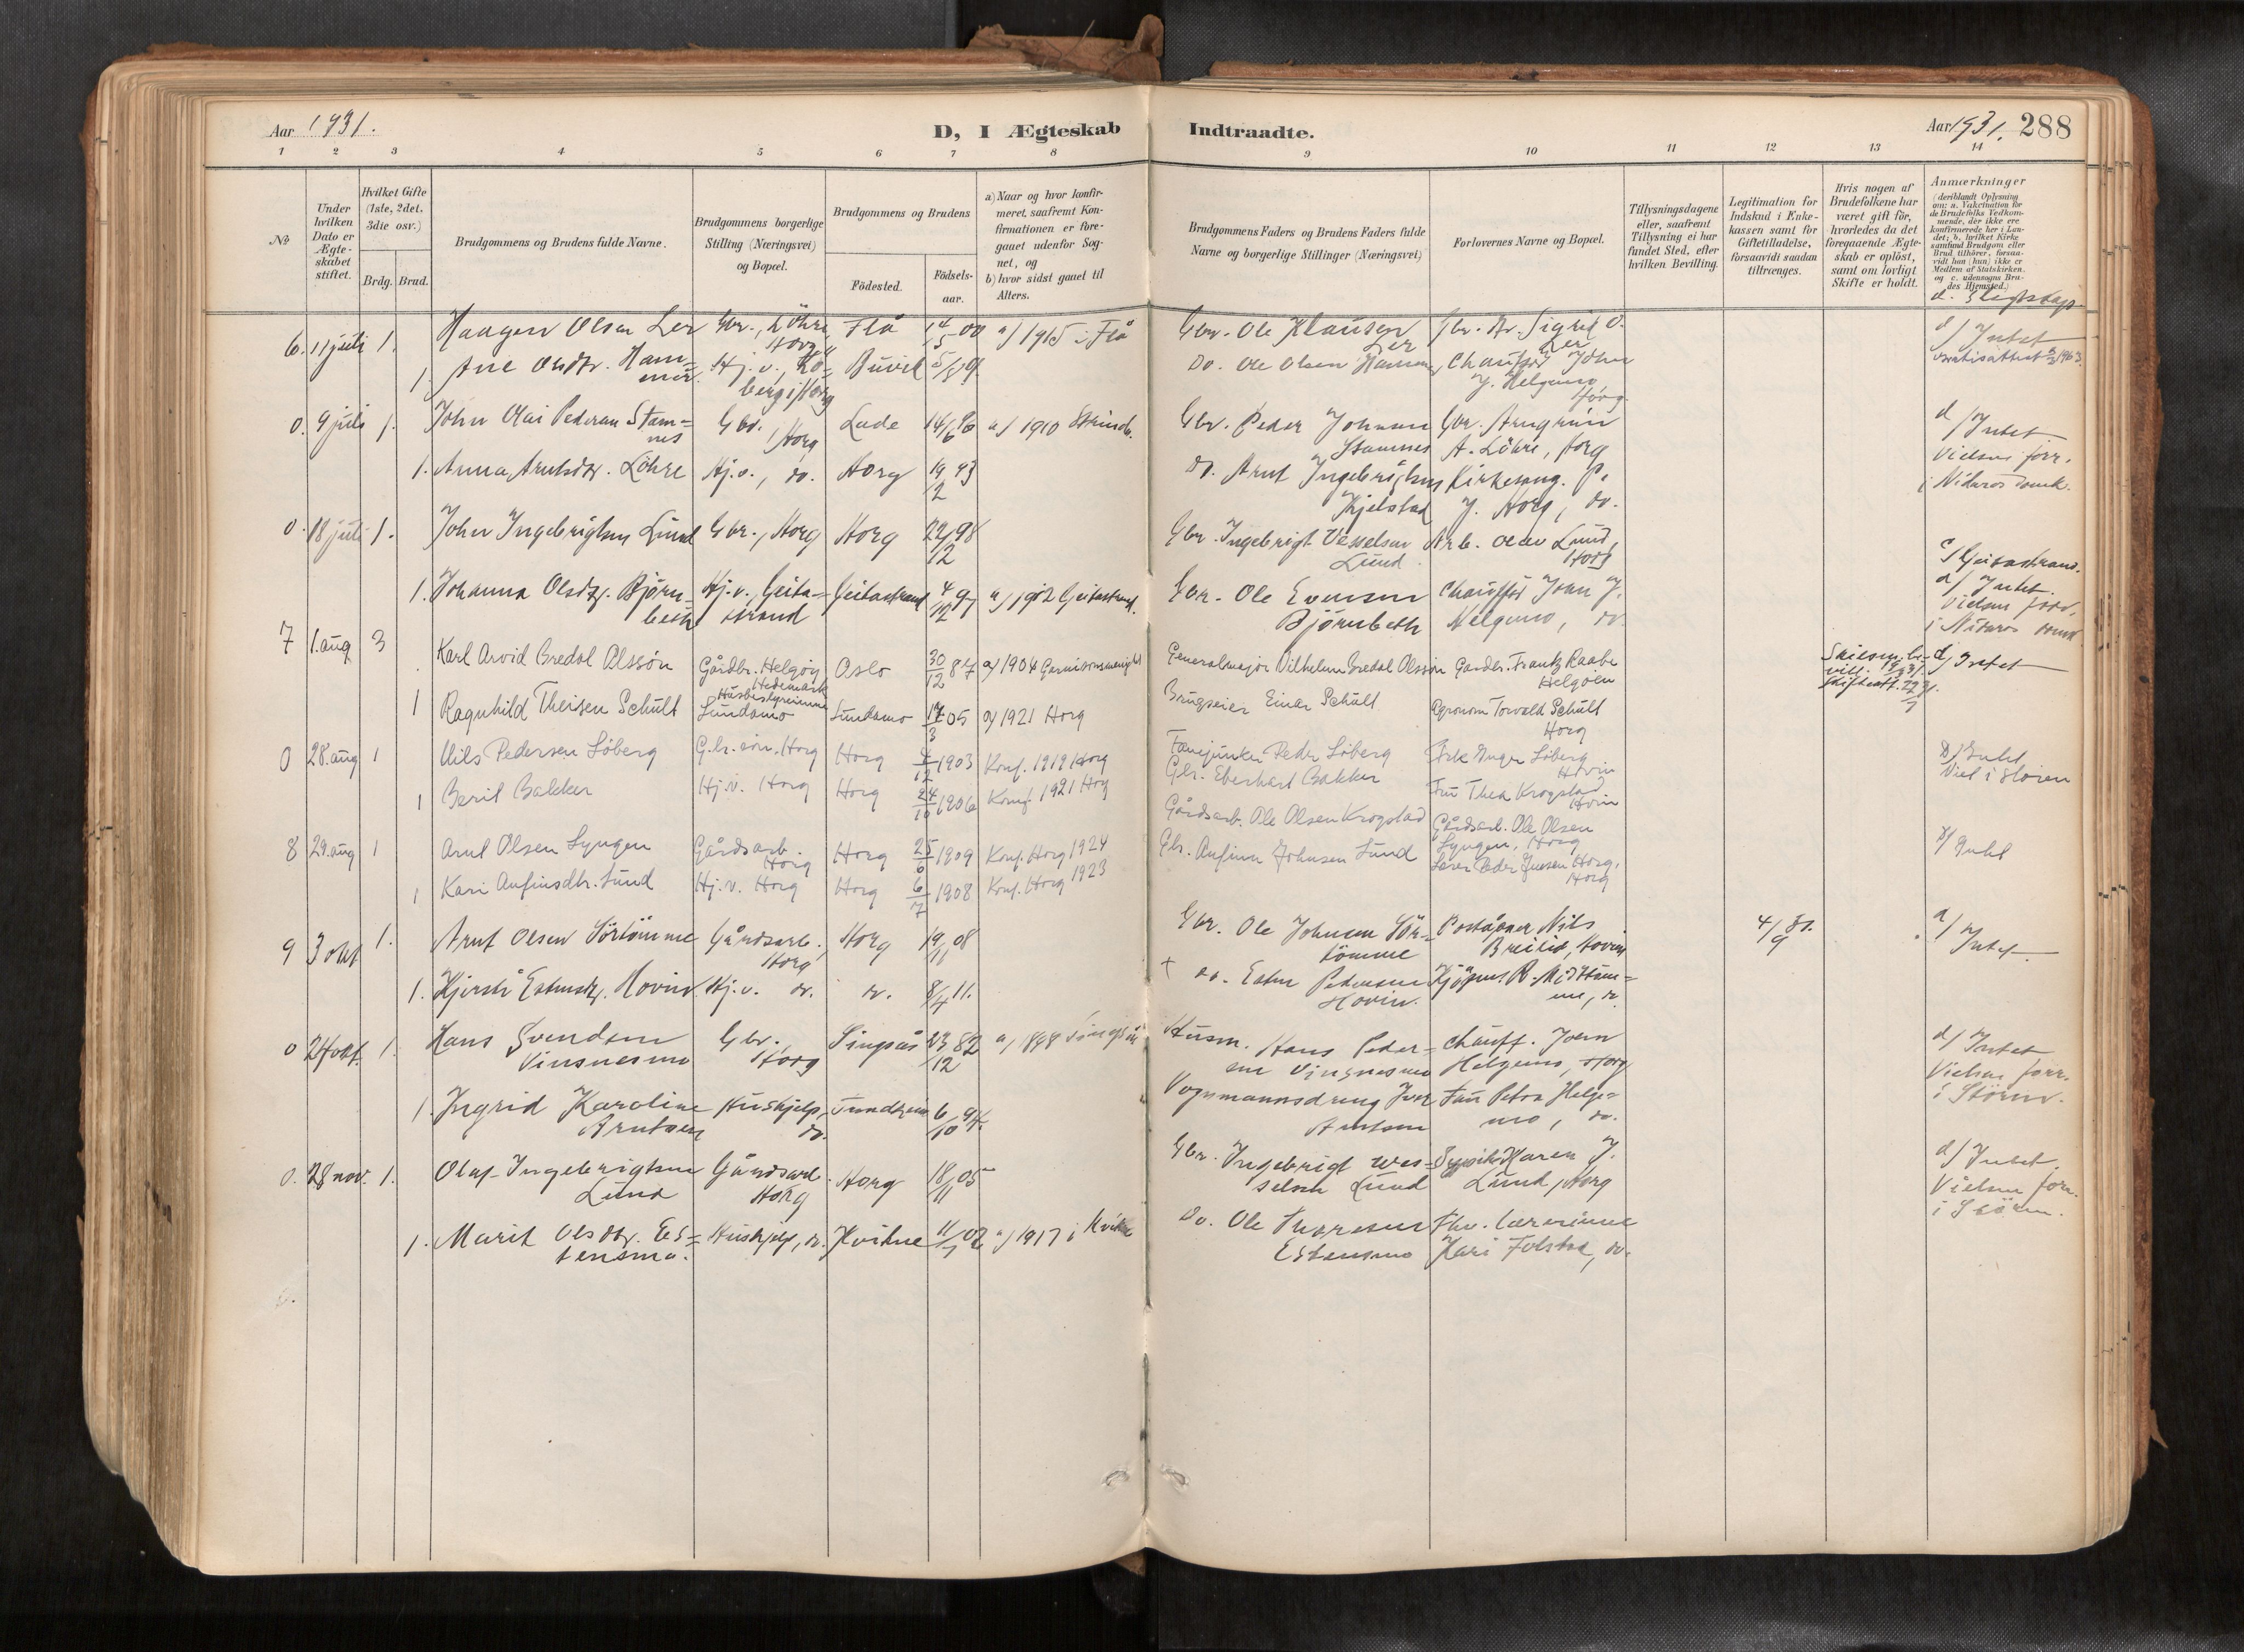 Aar 1931.
D, I Ægteskab
Indtraadte.
Aar 1931. 288
1 2 3 4 5 6 7 8 9 10 11 12 13 14
No
Under hvilken Dato er Ægteskabet stiftet.
Hvilket Gifte (1ste, 2det, 3die osv.)
Brdg. Brud.
Brudgommens og Brudens fulde Navne.
Brudgommens borgerlige Stilling (Næringsvei) og Bopæl.
Brudgommens og Brudens
Födested.
Födselsaar.
a) Naar og hvor konfirmeret, saafremt Konfirmationen er foregaaet udenfor Sognet, og
b) hvor sidst gaaet til Alters.
Brudgommens Faders og Brudens Faders fulde Navne og borgerlige Stillinger (Næringsvei)
Forlovernes Navne og Bopæl.
Tillysningsdagene eller, saafremt Tillysning ei har fundet Sted, efter hvilken Bevilling.
Legitimation for Indskud i Enkekassen samt for Giftetilladelse, forsaavidt saadan tiltrænges.
Hvis nogen af Brudefolkene har været gift för, hvorledes da det foregaaende Ægteskab er oplöst, samt om lovligt Skifte er holdt.
Anmærkninger
(deriblandt Oplysning om: a. Vakcination for de Brudefolks Vedkommende, der ikke ere konfirmerede her i Landet; b. hvilket Kirkesamfund Brudgom eller Brud tilhörer, forsaavidt han (hun) ikke er Medlem af Statskirken, og c. udensogns Brudes Hjemsted.)
d. Slegtskap.
6. 11 juli 1. Haagen Olsen Ler Gbr., Löhre Horg Flå 14/5 00 a) 1915 i Flå Gbr. Ole Klausen Ler Gbr. Sigrid O. Ler d) Intet
1. Ane Olsdtr. Hammer Hj.v., Horg Buvik Do. Ole Olsen Hammer Chauffør John J. Helgemo, Horg
0. 9 juli 1. John Olai Pedersen Stamnes Gbr. Horg Lade 14/6 96 a) 1910 Strinda. Gbr. Peder Johnsen Stamnes Gbr. Arngrim A. Löhre, Horg d) Intet
Vielsen forr. i Nidaros domk.
1. Anna Arntsdtr. Löhre Hj.v., do. Horg 19/2 93 do. Arnt Ingebrigtsen Kjelstad Kirkesang. P. J. Horg, do.
0. 18 juli 1. John Ingebrigtsen Lund Gbr., Horg Horg 22/12 98 Gbr. Ingebrigt Vesselsen Lund Arb. Olav Lund, Horg
c) Geitastrand.
1. Johanna Olsdtr. Björnbeth Hj.v., Geitastrand Geitastrand 4/12 97 a) 1912 Geitastrand. Gbr. Ole Evensen Björnbeth Chauffør John J. Helgemo, do. d) Intet.
Vielsen forr. i Nidaros domk.
7 1. aug 3 Karl Arvid Bredal Olssön Gårdbr. Helgöy Hedemark Oslo 30/12 87 a) 1904 Garnisonsmenighet Generalmajor Vilhelm Bredal Olssön Gardbr. Frantz Raabe Helgöen d) Intet
1 Ragnhild Theisen Schult Husbestyrerinne Lundamo Lundamo 05 a) 1921 Horg Brugseier Einar Schult Agronom Torvald Schult Horg
0 28. aug 1 Nils Pedersen Löberg G.br. sön. Horg Horg 1903 Konf. 1919 Horg Fanejunker Peder Löberg Frk Inger Löberg Hovin D) Intet
Viet i Stören
1 Berit Bakken Hj.v. Horg Horg 24/10 1906 Konf. 1921 Horg Gbr. Eberhart Bakken Fru Thea Krogstad Hovin
8 29. aug 1 Arnt Olsen Lyngen Gårdsarb. Horg Horg 25/6 1909 Konf. Horg 1924 Gårdsarb. Ole Olsen Krogstad Gårdsarb. Ole Olsen Lyngen, Horg D) Intet
1 Kari Anfinsdtr. Lund Hj.v. Horg Horg 6/7 1908 Konf. Horg 1923 Gbr. Anfinn Johnsen Lund Lærer Peder Horg, Horg
9 3 okt 1. Arnt Olsen Sörtömme Gårdsarb., Horg Horg 19/11 08 Gbr. Ole Johnsen Sörtömme Poståpner Nils Breilid, Hovin 4/9 31. d) Intet
1. Kjersti Estensdtr. Hovin Hj.v. do. do. 8/4 11. + do. Esten Pedersen Hovin. Kjöpm. R. Midttömme, do.
0 24 okt. 1. Hans Svendsen Vinsnesmo Gbr., Horg Singsås 23/12 82 a) 1898 Singsås Husm. Hans Pedersen Vinsnesmo Chauff. John Helgemo, Horg d) Intet
Vielsen forr. i Stören.
1. Ingrid Karoline Arntsen Hushjelp, do. Trondheim 6/10 94. Vognmannsdreng Iver Arntsen Fru Petra Helgemo, do.
0. 28 nov. 1. Olaf Ingebrigtsen Lund Gårdsarb. Horg Horg 18/11 05 Gbr. Ingebrigt Wesselsen Lund Sypike Karen J. Lund, Horg d) Intet.
Vielsen forr. i Stören.
1. Marit Olsdtr. Estensmo. Hushjelp, do. Kvikne 11/1 02 a) 1917 i Kvikne Do. Ole Estensmo Fhv. Lærerinne Kari Folstad, do.